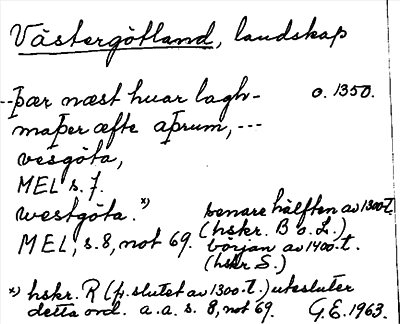 Västergötland, landskap
--þær næst huar lagh- o. 1350.
maþer æfte aþrum, ---
vesgöta,
MEL s. 7.
westgöta. x) senare hälften av 1300-t.
(hskr. B o. L.)
MEL, s. 8, not 69. början av 1400-t.
(hskr S.)
x) hskr. R (fr. slutet av 1300-t.) utesluter
detta ord. a. a. s. 8, not 69. G.E. 1963.